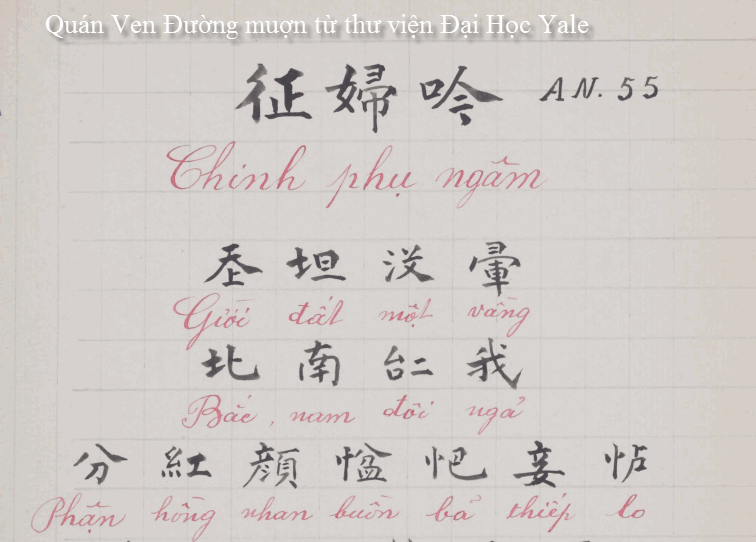 Quán Ven Đường muợn từ thư viện Đại Học Yale
征婦吟 AN. 55
Chinh phụ ngâm
𡗶坦没暈
Giời đất một vầng
北南𠄩我
Bắc, nam đôi ngả
分紅顔𢞂妾怗
Phận hồng nhan buồn bả thiếp lo